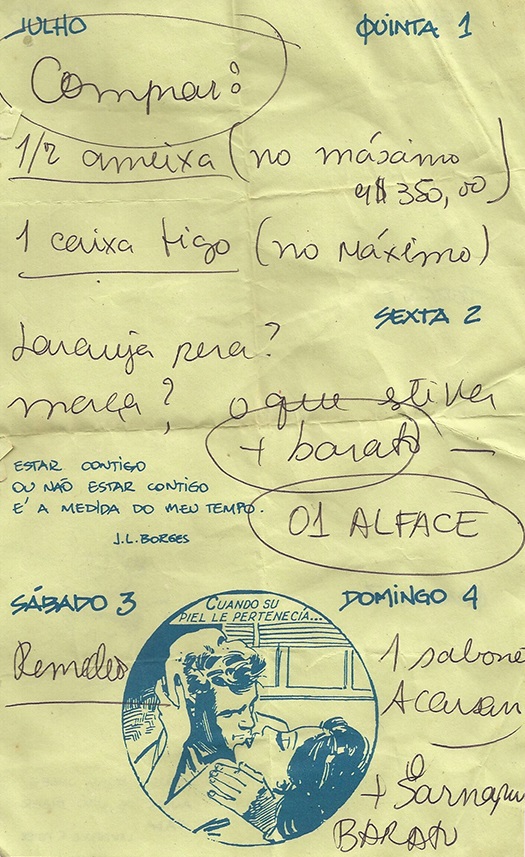 JULHO QUINTA 1
Comprar:
1/2 ameixa (no máximo
350,00)
1 caixa figo (no máximo)
SEXTA 2
Laranja pera?
maçã? o que estiver
+ barato —
ESTAR CONTIGO
OU NÃO ESTAR CONTIGO
E' A MEDIDA DO MEU TEMPO.
J.L. BORGES
01 ALFACE
SÁBADO 3 DOMINGO 4
CUANDO SU
PIEL LE PERTENECÍA...
1 sabone
+ o
BARATO